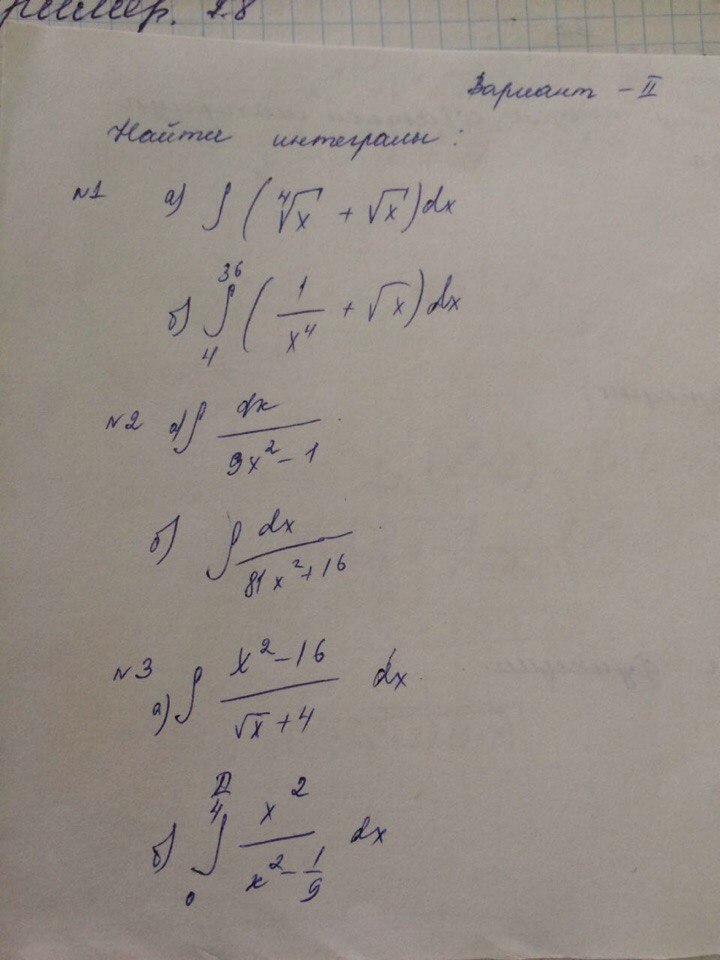 ример. 2.8
Вариант - II
Найти интегралы:
№1 а) ∫ (⁴√x + √x) dx
б) ∫₄³⁶ (1/x⁴ + √x) dx
№2 а) ∫ dx/(9x² - 1)
б) ∫ dx/(81x² + 16)
№3 а) ∫ (x² - 16)/(√x + 4) dx
б) ∫ ₀ 4 x²/(x² - 1/9) dx